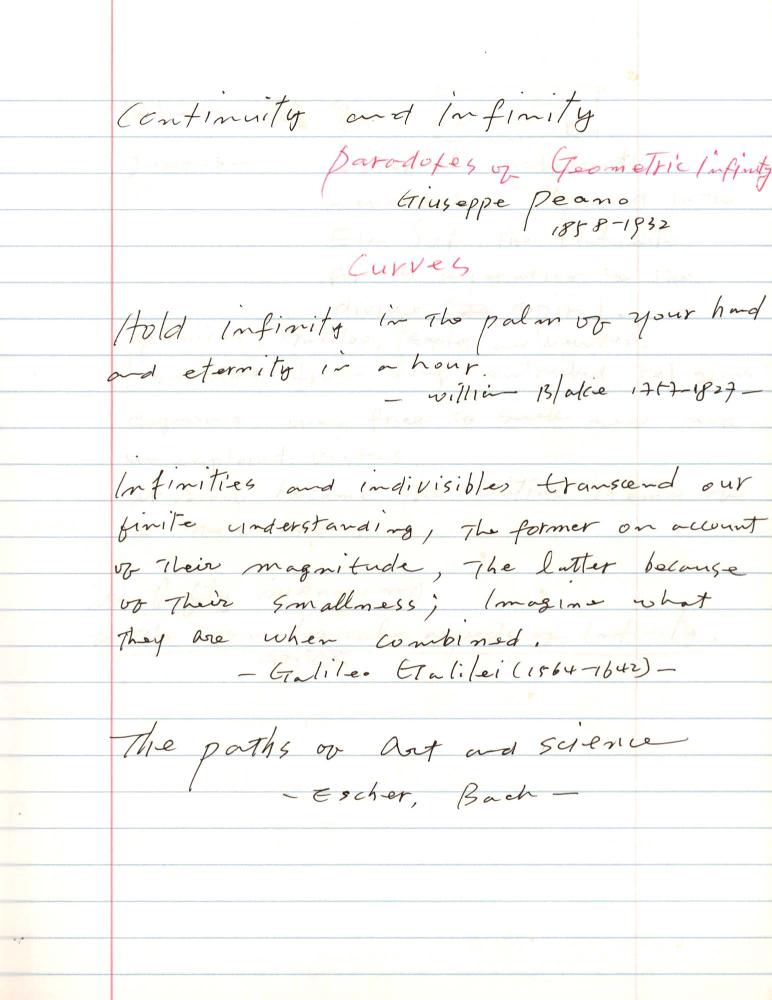 Continuity and infinity
Paradoxes of Geometric Infinity
Giuseppe Peano
1858-1932
Curves
Hold infinity in the palm of your hand
and eternity in a hour.
- William Blake 1757-1827 -
Infinities and indivisibles transcend our
finite understanding, the former on account
of their magnitude, the latter because
of their smallness; Imagine what
they are when combined.
- Galileo Galilei (1564-1642) -
The paths of Art and science
- Escher, Bach -